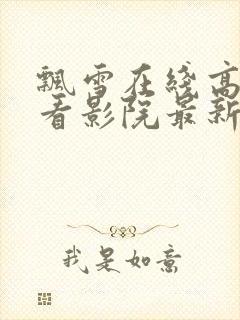 飘雪在线高
看影院最新
我是如意